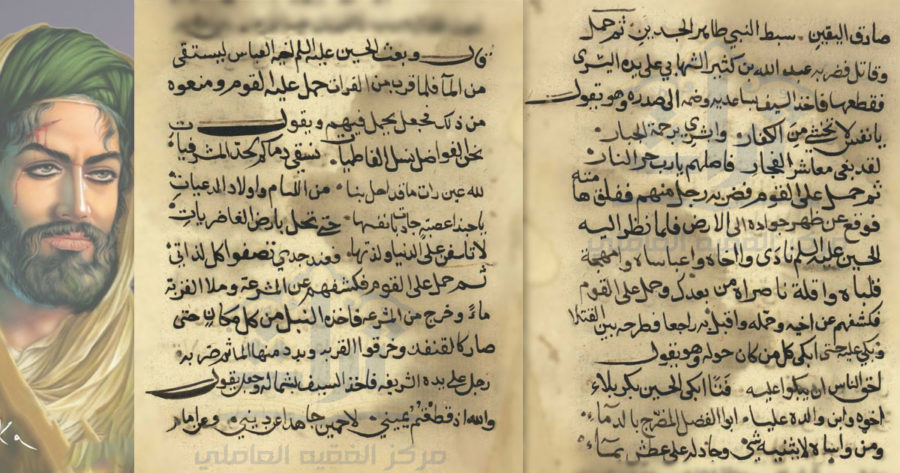 قال وبعث الحسين عليه السلم اخيه العباس ليستقى
من المآ فلما قرب من الفرات حمل عليه القوم ومنعوه
من ذلك فجعل يجول فيهم ويقول
نحن الفواضل نسل الفاطميات نسقي دماكم بحد المشرفيات
لله عين رات ما قد احل بنا من اللئام واولاد الدعيات
يا حبذا عصبة جادت بانفسها حتى تحل بارض الغاضريات
لا تاسفن على الدنيا ولذتها فعند جدي تصفوا كل لذاتي
ثم حمل على القوم فكشفهم عن المشرعة وملا القربة
ماءً وخرج من المشرعة فاخذه النبل من كل مكان حتى
صار كالقنفذ وخرقوا القربه وبدد منها الما ثم ضربه
رجل على يده الشريفه فاخذ السيف بشماله وجعل يقول
والله ان قطعتم يميني لاحمين جاهدا عن ديني وعن امام
صادق اليقين سبط النبي طاهر الجدين ثم حمل
وقاتل فضربه عبد الله بن كثير الشهابي على يده اليسرى
فقطعها فاخذ السيف بساعديه وضمه الى صدره وهو يقول
يا نفس لا تخشي من الكفار وابشري برحمة الجبار
لقد بغى معاشر الفجار فاصلهم يا رب حر النار
ثم حمل على القوم فضربه رجل منهم ففلق هامته
فوقع عن ظهر جواده الى الارض فلما نظر اليه
الحسين عليه السلم نادى وا اخاه وا عباساه وا مهجة
قلباه وا قلة ناصراه من بعدك وحمل على القوم
فكشفهم عن اخيه وحمله واقبل به راجعا وطرحه بين القتلا
وبكى عليه حتى ابكى كل من كان حوله وهو يقول
احق الناس ان يبكوا عليه فتًا ابكى الحسين بكربلاء
اخوه وابن والده علياء ابوا الفضل المضرج بالدماء
ومن واساه لا يثنيه شي وجاد له على عطش بماء
مركز الفقيه العاملي
مركز الفقيه العاملي